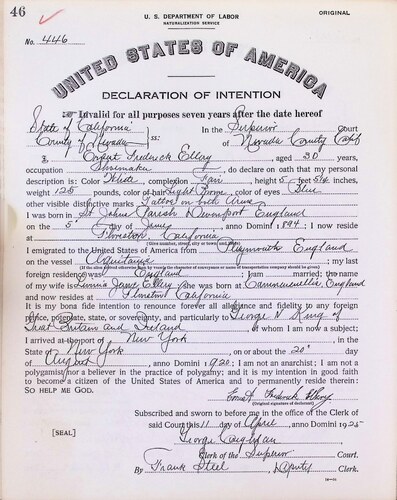 46
U. S. DEPARTMENT OF LABOR
ORIGINAL
NATURALIZATION SERVICE
No. 446
UNITED STATES OF AMERICA
DECLARATION OF INTENTION
Invalid for all purposes seven years after the date hereof
State of California
In the Superior Court
County of Nevada ss:
of Nevada County Calif
I, Ernest Frederick Ellery, aged 30 years,
occupation Shoemaker, do declare on oath that my personal
description is: Color White, complexion Fair, height 5 feet 5¼ inches,
weight 125 pounds, color of hair Light Brown, color of eyes Blue
other visible distinctive marks Tattoo on both Arms
I was born in St Johns Parish Devonport England
on the 5 day of, anno Domini 1894; I now reside
at, California
(Give number, street, city or town, and State)
I emigrated to the United States of America from Plymouth England
on the vessel Aquitania; my last
(If the alien arrived otherwise than by vessel, the character of conveyance or name of transportation company should be given)
foreign residence was England; I am married; the name
of my wife is Jane Ellery; she was born at England
and now resides at California
It is my bona fide intention to renounce forever all allegiance and fidelity to any foreign
prince, potentate, state, or sovereignty, and particularly to George V King of
Great Britain and Ireland, of whom I am now a subject;
I arrived at the port of New York, in the
State of New York, on or about the 20 day
of August, anno Domini 1920; I am not an anarchist; I am not a
polygamist nor a believer in the practice of polygamy; and it is my intention in good faith
to become a citizen of the United States of America and to permanently reside therein:
SO HELP ME GOD.
Ernest Frederick Ellery
(Original signature of declarant)
Subscribed and sworn to before me in the office of the Clerk of
said Court this 11 day of April, anno Domini 1925
[SEAL]
George
Clerk of the Superior Court.
By Frank Steel, Deputy Clerk.